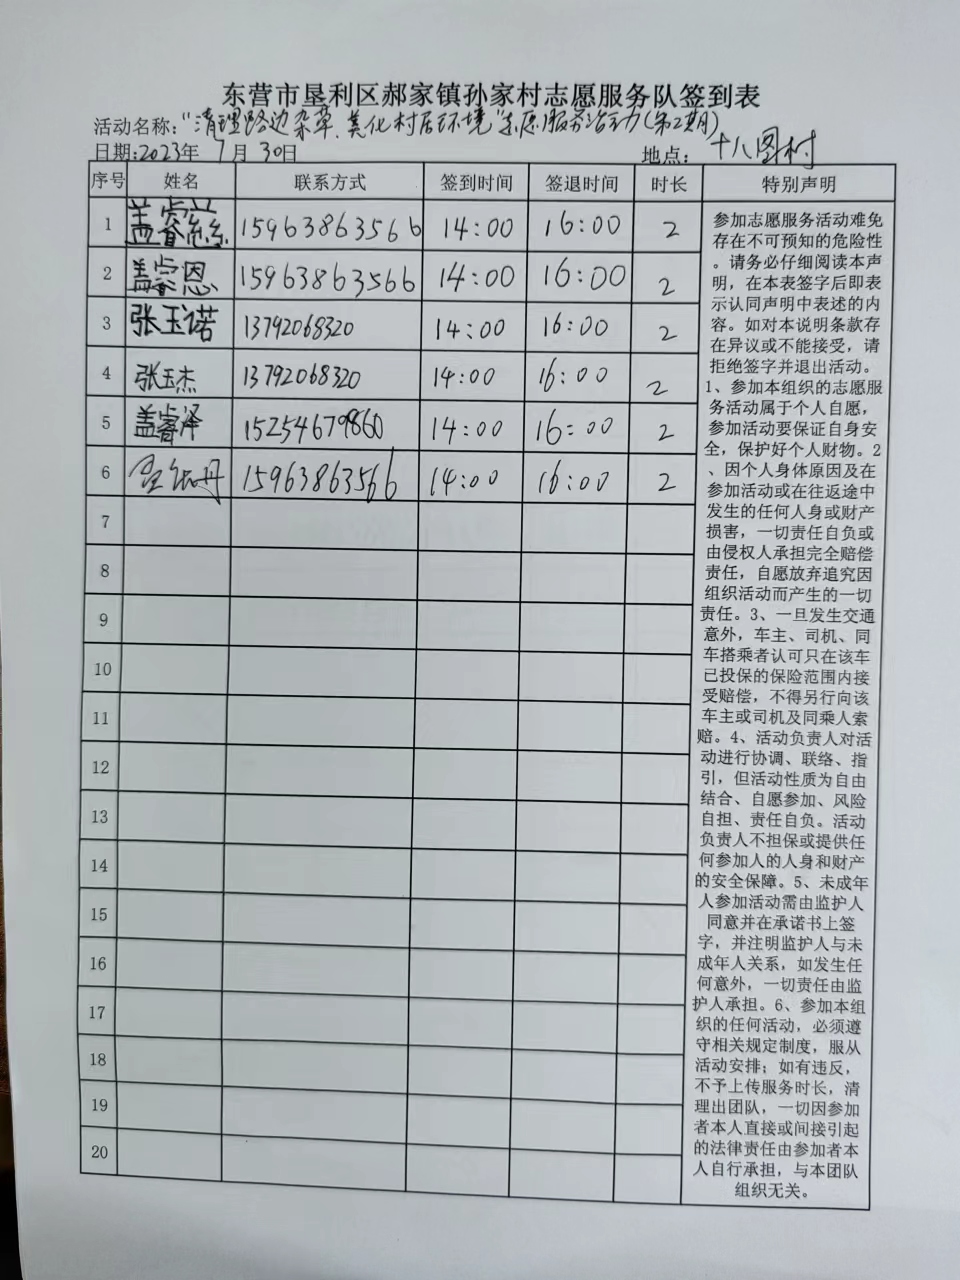 东营市垦利区郝家镇孙家村志愿服务队签到表
活动名称："清理路边杂草、美化村居环境"志愿服务活动(第2期)
日期:2023年 7 月 30日 地点: 十八图村
序号 姓名 联系方式 签到时间 签退时间 时长 特别声明
1 盖睿 15963863566 14:00 16:00 2
2 盖睿恩 15963863566 14:00 16:00 2
3 张玉诺 13792068320 14:00 16:00 2
4 张玉杰 13792068320 14:00 16:00 2
5 盖睿泽 15254679860 14:00 16:00 2
6 15963863566 14:00 16:00 2
7
8
9
10
11
12
13
14
15
16
17
18
19
20
参加志愿服务活动难免
存在不可预知的危险性
。请务必仔细阅读本声
明，在本表签字后即表
示认同声明中表述的内
容。如对本说明条款存
在异议或不能接受，请
拒绝签字并退出活动。
1、参加本组织的志愿服
务活动属于个人自愿，
参加活动要保证自身安
全，保护好个人财物。2
、因个人身体原因及在
参加活动或在往返途中
发生的任何人身或财产
损害，一切责任自负或
由侵权人承担完全赔偿
责任，自愿放弃追究因
组织活动而产生的一切
责任。3、一旦发生交通
意外，车主、司机、同
车搭乘者认可只在该车
已投保的保险范围内接
受赔偿，不得另行向该
车主或司机及同乘人索
赔。4、活动负责人对活
动进行协调、联络、指
引，但活动性质为自由
结合、自愿参加、风险
自担、责任自负。活动
负责人不担保或提供任
何参加人的人身和财产
的安全保障。5、未成年
人参加活动需由监护人
同意并在承诺书上签
字，并注明监护人与未
成年人关系，如发生任
何意外，一切责任由监
护人承担。6、参加本组
织的任何活动，必须遵
守相关规定制度，服从
活动安排；如有违反，
不予上传服务时长，清
理出团队，一切因参加
者本人直接或间接引起
的法律责任由参加者本
人自行承担，与本团队
组织无关。